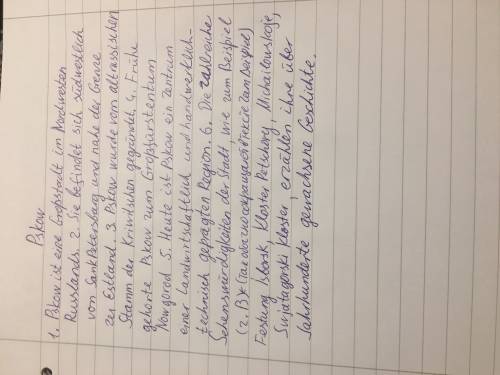 Pskow
1. Pskow ist eine Großstadt im Nordwesten
Russlands. 2. Sie befindet sich südwestlich
von SankPetersburg und nahe der Grenze
zu Estland. 3. Pskow wurde vom altrussischen
Stamm der Kriwitschen gegründet. 4. Frühe
gehörte Pskow zum Großfürstentum
Nowgorod 5. Heute ist Pskow ein Zentrum
einer Landwirtschaftlich und handwerklich-
technisch gepragten Region. 6. Die zahlreiche
Sehenswürdigkeiten der Stadt, wie zum Beispiel
(z. B)* (так обычно сокращают в тексте zam Beispiel)
Festung Isborsk, Kloster Petschory, Michailowskoje,
Swjatagorski Kloster, erzählen ihre über
Jahrhunderte gewachsene Geschichte.